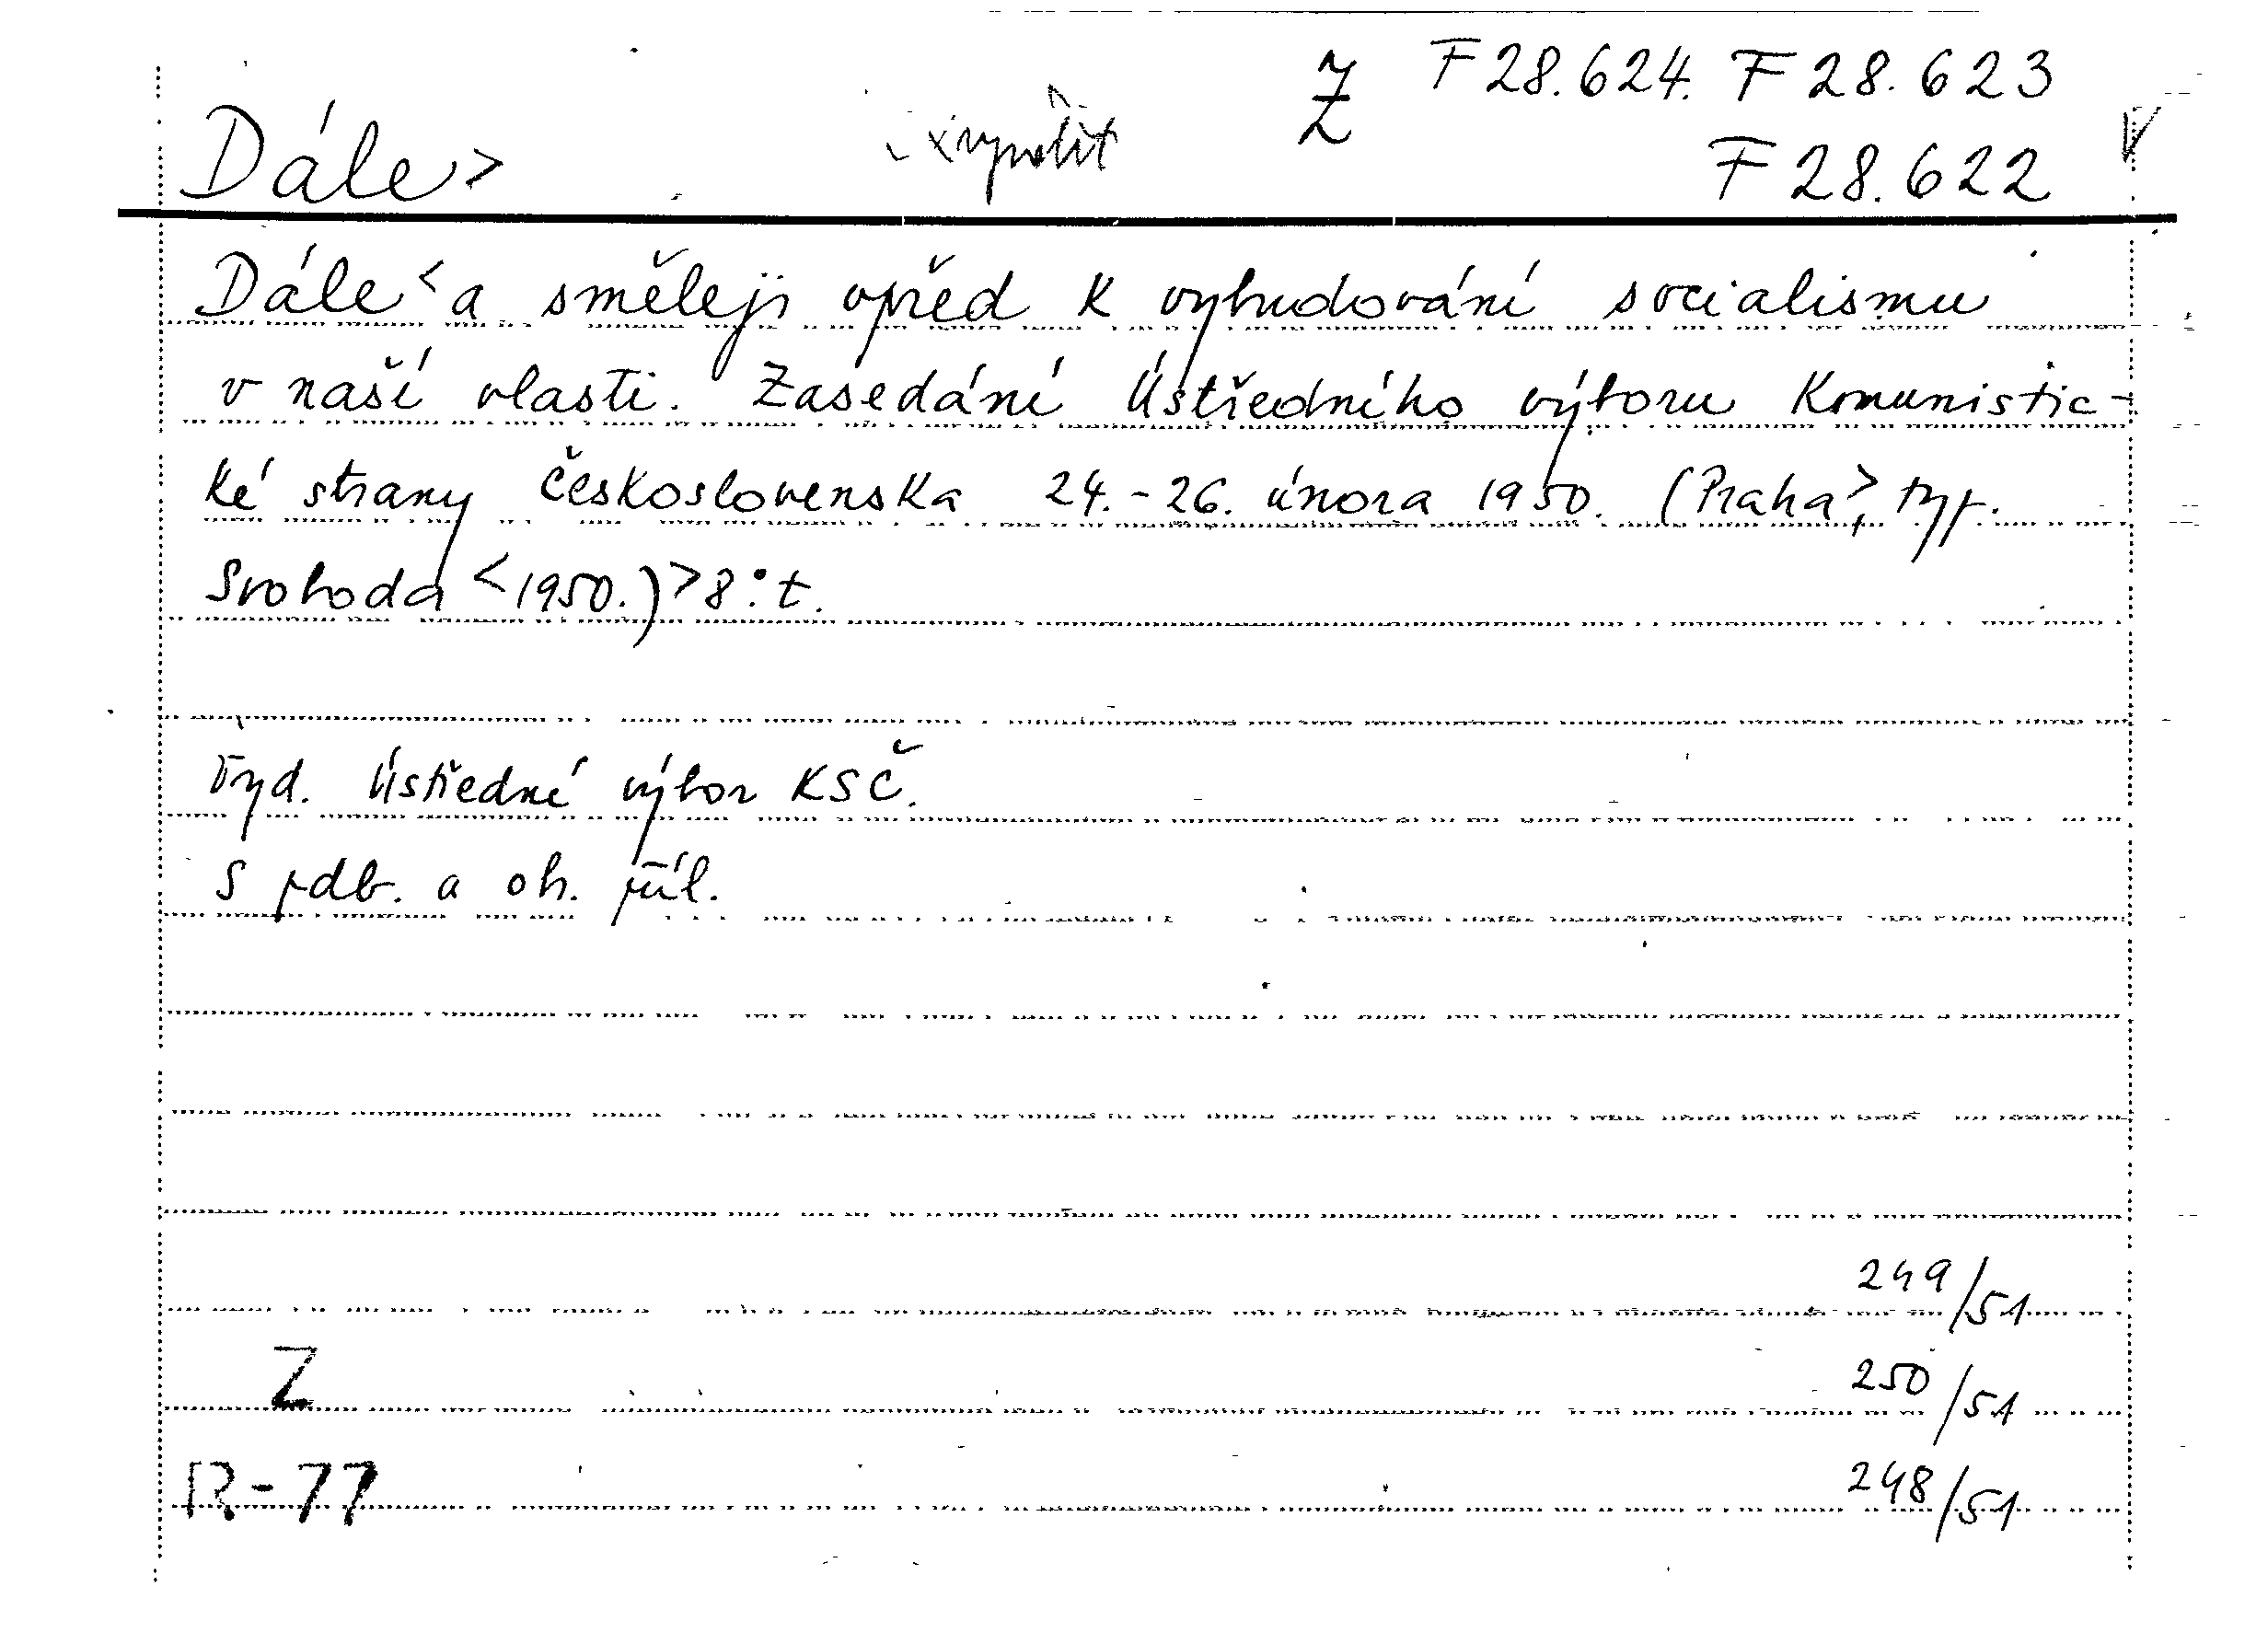 Z F 28.624. F 28.623
Dále> F 28.622
Dále< a směleji vpřed k vybudování socialismu
v naší vlasti. Zasedání Ústředního výboru Komunistic-
ké strany Československa 24.-26. února 1950. (Praha>, typ.
Svoboda <1950.)> 8°. t.
Vyd. Ústřední výbor KSČ.
S pdb. a ob. příl.
249/51
Z 250/51
R-77 248/51